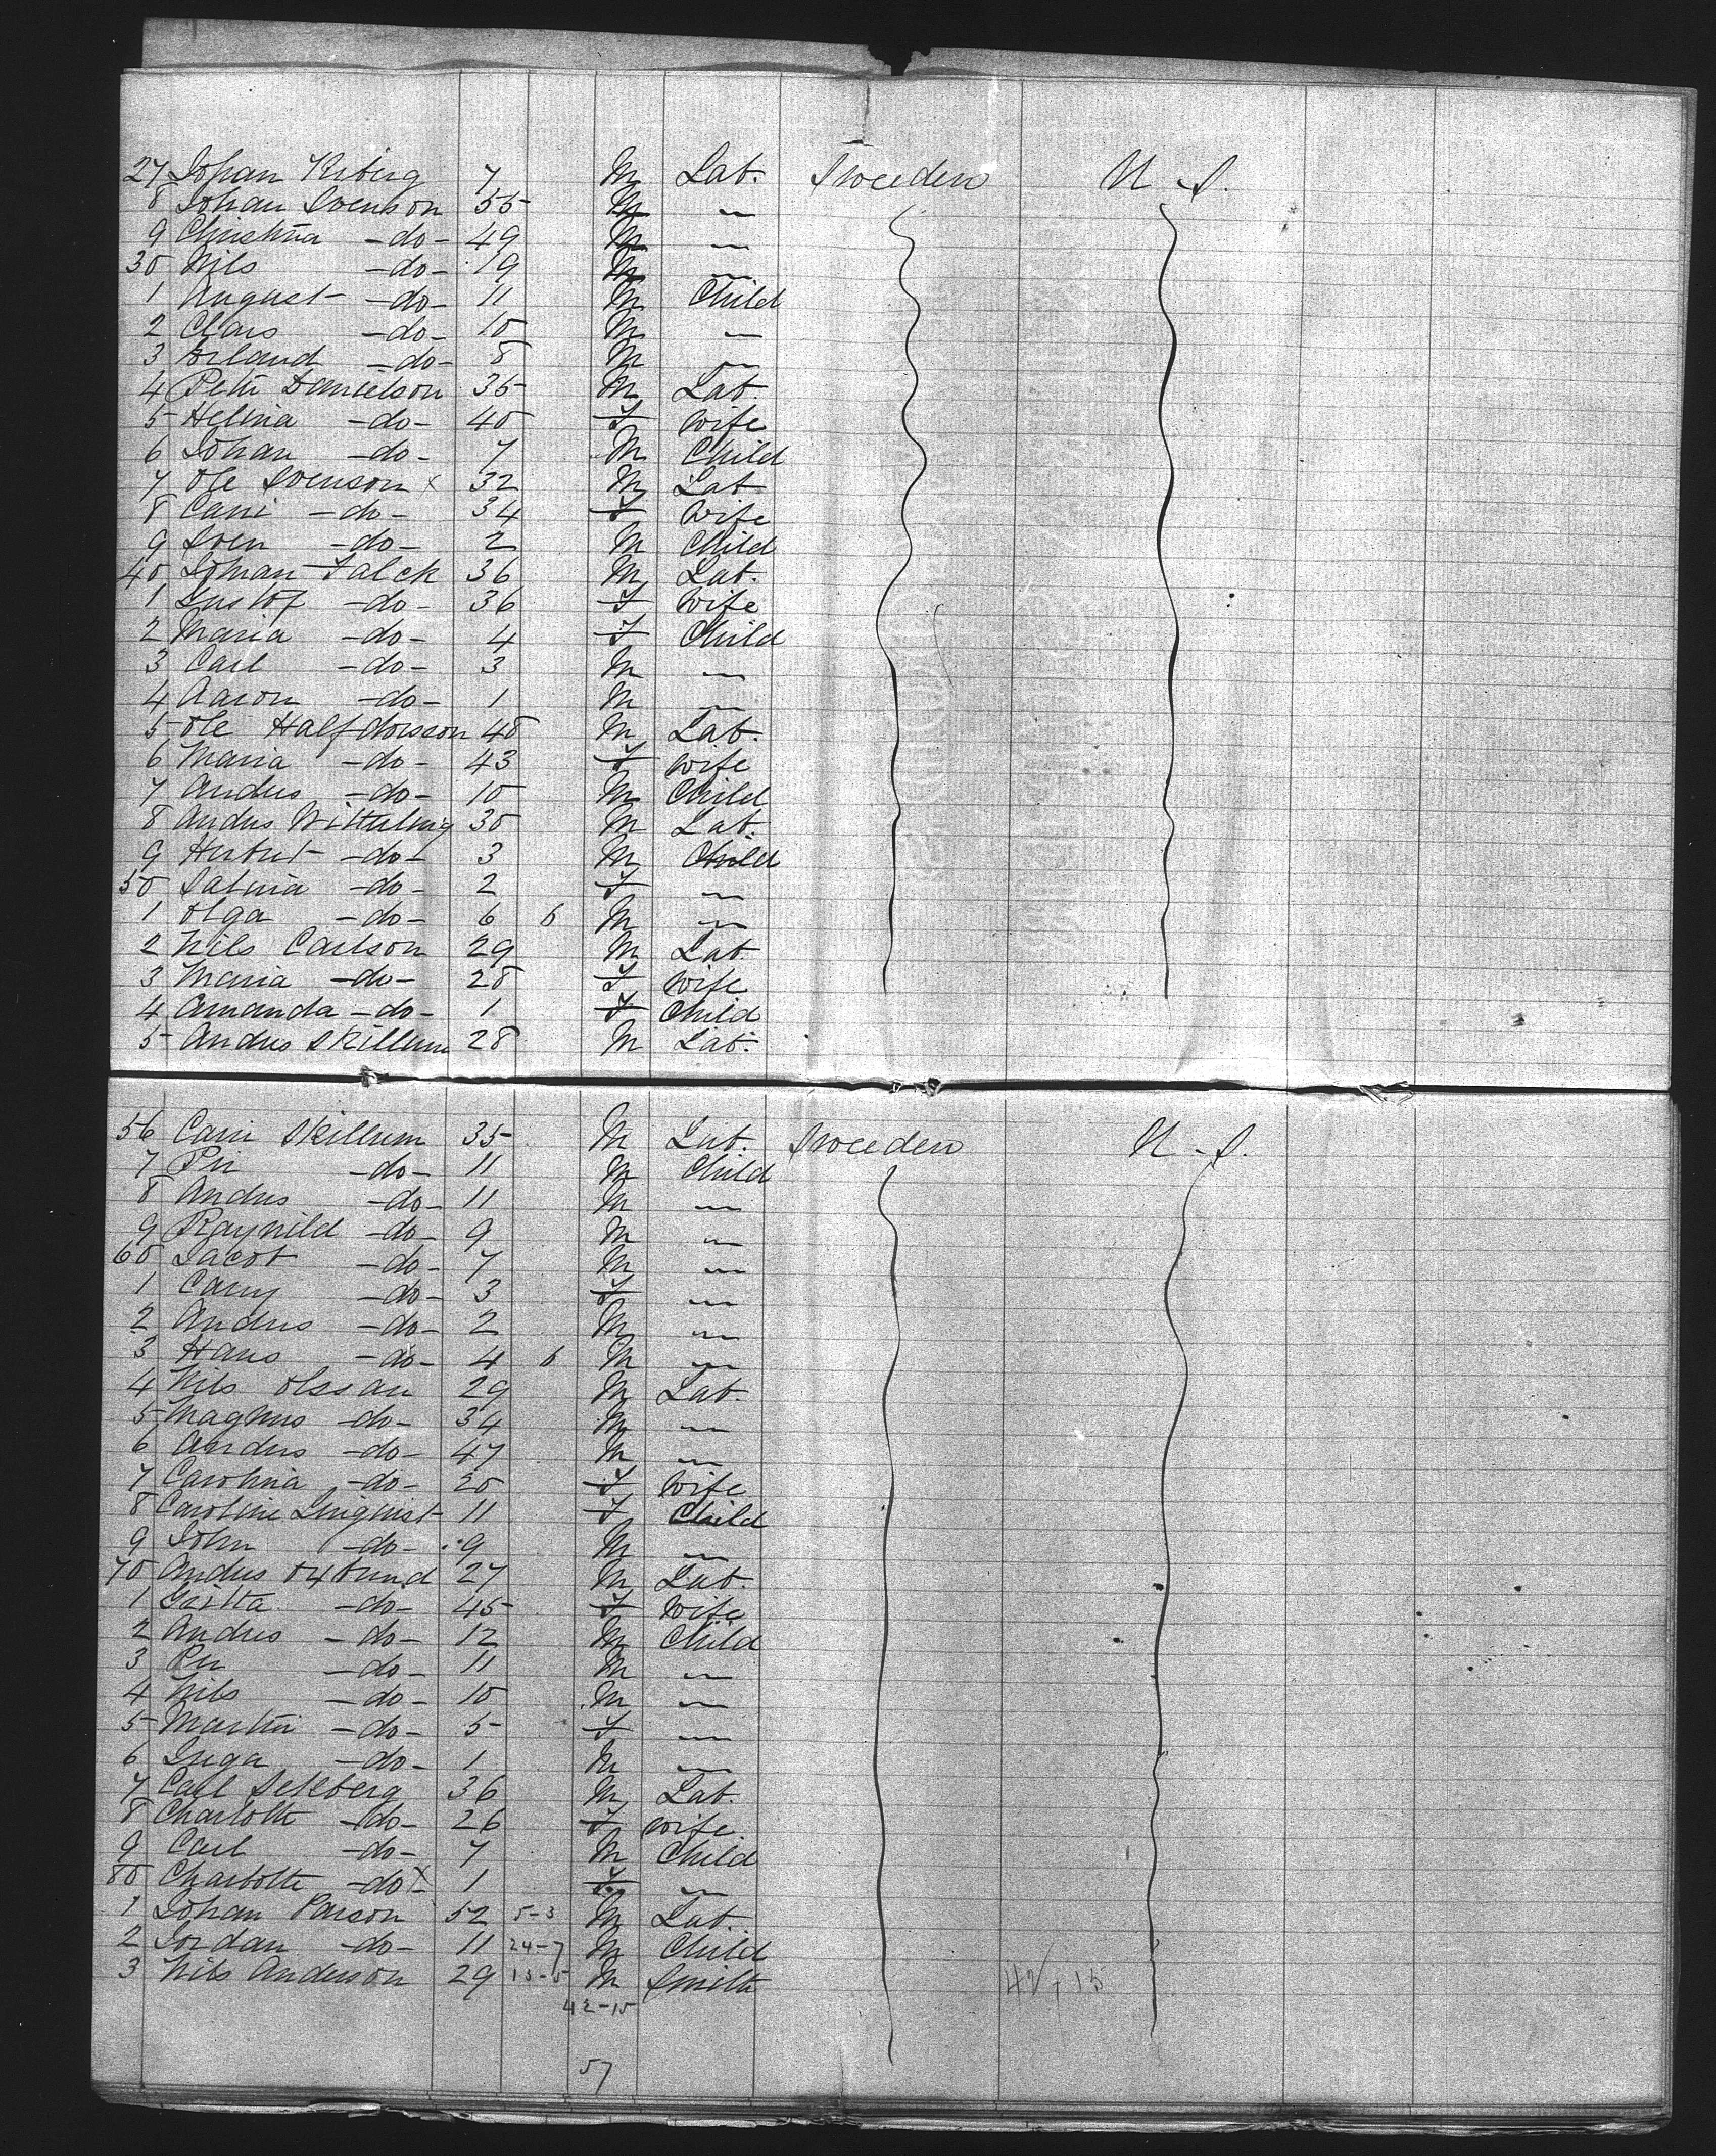 27 Johan 7 M Lab. Sweeden U-S.
8 Johan Svenson 55 M "
9 Christina -do- 49 M "
30 Nils -do- 19 M "
1 August -do- 11 M Child
2 Clars -do- 10 M "
3 Erland -do- 8 M "
4 Petter Danielson 35 M Lab.
5 Helma -do- 40 F wife
6 Johan -do- 7 M Child
7 Ole Svenson x 32 M Lab
8 Cari -do- 34 F wife
9 Sven -do- 2 M Child
40 Johan Falck 36 M Lab.
1 Gustof -do- 36 F wife
2 Maria -do- 4 F Child
3 Carl -do- 3 M "
4 Aaron -do- 1 M "
5 Ole Halfdorsson 48 M Lab.
6 Maria -do- 43 F wife
7 Andus -do- 10 M Child
8 Andus 30 M Lab.
9 Herbert -do- 3 M Child
50 -do- 2 F "
1 Olga -do- 6 6 M "
2 Nils Carlson 29 M Lab.
3 Maria -do- 28 F wife
4 Amanda -do- 1 F Child
5 Andus Skillum 28 M Lab.
56 Cari Skillum 35 M Lab. Sweeden U-S.
7 Per -do- 11 M Child
8 Andus -do- 11 M "
9 Raynild -do- 9 M "
60 Jacob -do- 7 M "
1 Carry -do- 3 F "
2 Andus -do- 2 M "
3 Hans -do- 4 6 M "
4 Nils Olssan 29 M Lab.
5 Magnus -do- 34 M "
6 Andus -do- 47 M "
7 Carolina -do- 20 F wife
8 Caroline Linquist 11 F Child
9 John -do- 9 M "
70 Andus 27 M Lab.
1 Gritta -do- 45 F Wife
2 Andus -do- 12 M Child
3 Per -do- 11 M "
4 Nils -do- 10 M "
5 Martin -do- 5 F "
6 Inga -do- 1 M "
7 Carl Sellberg 36 M Lab.
8 Charlotte -do- 26 F wife
9 Carl -do- 7 M Child
80 Charlotte -do- x 1 F "
1 Johan Parson 52 5-3 M Lab.
2 Jordan -do- 11 24-7 M Child
3 Nils Anderson 29 13-5 M Smith 42, 15
42-15
57